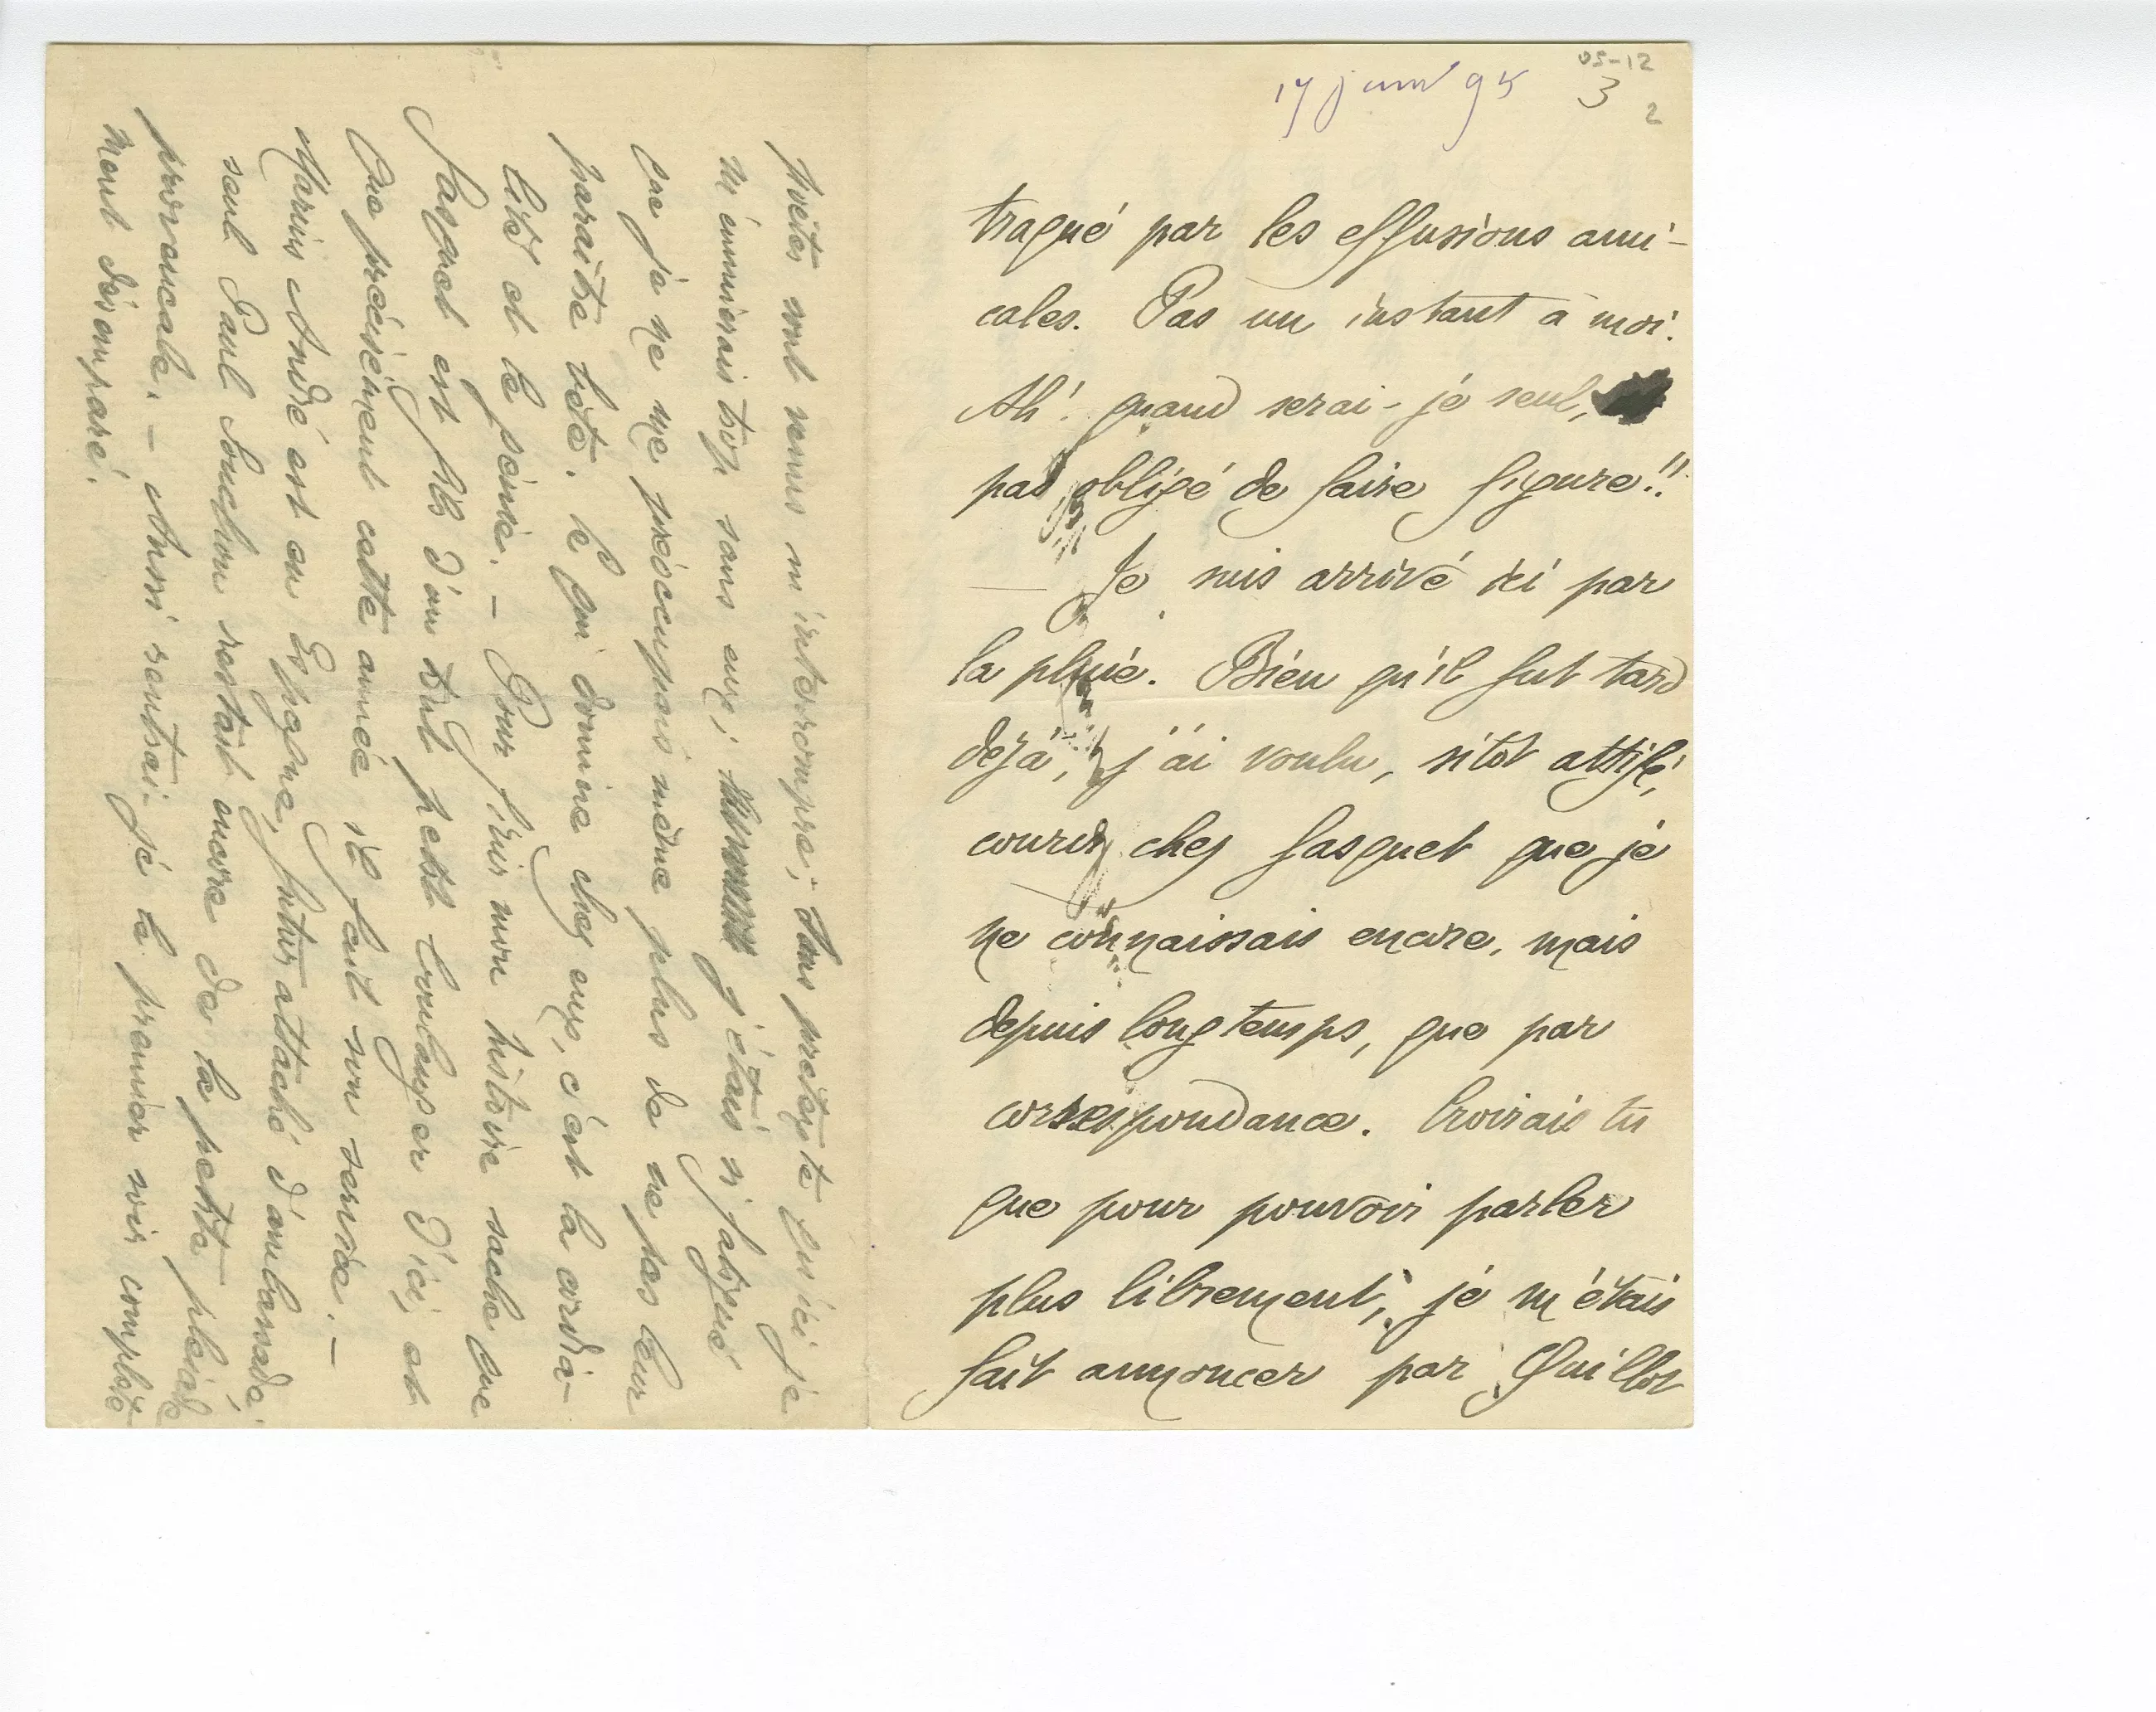 05-12
17 juin 95 3
2
traqué par les effusions ami-
cales. Pas un instant à moi.
Ah! quand serai-je seul,
pas obligé de faire figure!!
— Je suis arrivé ici par
la pluie. Bien qu'il fut tard
déjà, j'ai voulu, sitôt attifé,
courir chez Gasquet que je
ne connaissais encore, mais
depuis longtemps, que par
correspondance. Croirais tu
que pour pouvoir parler
plus librement, je m'étais
fait annoncer par Quillot
Poètes sont venus m'interrompre; sans prétexte qu'ici je
m'ennuierais trop sans eux; j'étais si fatigué
que je ne me préoccupais même plus de ne pas leur
paraître bête. Ce qui domine chez eux, c'est la cordia-
lité et le génie. — Pour finir mon histoire sache que
Gasquet est fils d'un tout petit boulanger d'ici, et
que précisément cette année il fait son service. —
Marius André est en Espagne, futur attaché d'ambassade;
seul Paul Souchon restait encore de la petite pléiade
provençale. — Aussi rentrai-je le premier soir complète-
ment désemparé.